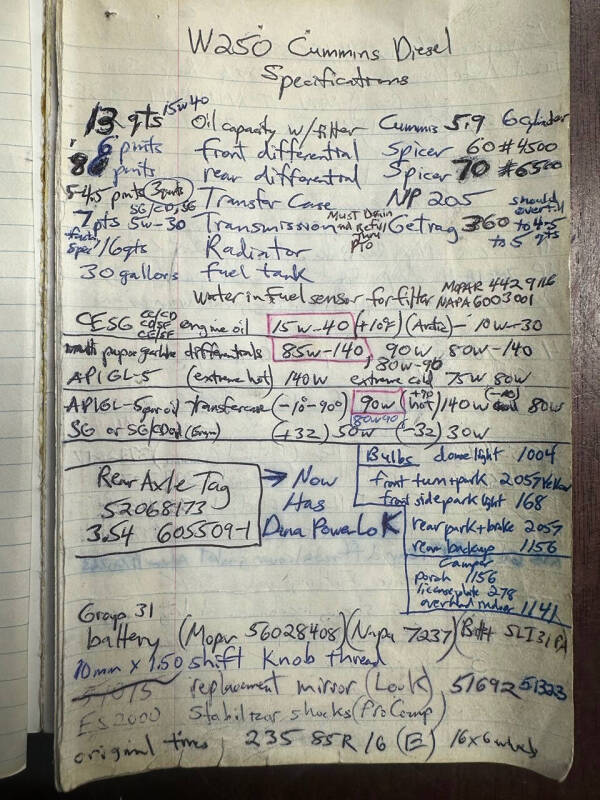 W250 Cummins Diesel
Specifications
13 qts 15w40 Oil capacity w/filter Cummins 5.9 6 cylinder
6 pints front differential Spicer 60 #4500
8 pints rear differential Spicer 70 #6500
5-4.5 pints 3 quarts Transfer Case NP 205
7 pts SG/CD, SG 5w-30 Transmission Must Drain and Refill thru PTO Getrag 360 should overfill to 4.5 to 5 qts
spec 16 qts Radiator
30 gallons fuel tank
water in Fuel sensor for filter MOPAR 4429116 NAPA 6003001
CE SG CC/CD CD/SF CE/SF engine oil 15w-40 (+10°F) (Artic) - 10w-30
multi purpose gear lube differentials 85w-140, 90w 80w-140
80w-90
API GL-5 (extreme hot) 140w extreme cold 75w 80w
API GL-5 gear oil transfercase (-10°-90°) 90w (+90 hot) 140w 80w
80w90
SG or SG/CD oil (Engin) (+32) 50w (-32) 30w
Rear Axle Tag
52068173
3.54 605509-1
→ Now
Has
Dana PowerLoK
Bulbs dome light 1004
front turn+park 2057
front side park light 168
rear park+brake 2057
rear backup 1156
Camper
porch 1156
license plate 278
overhead indoor 1141
Group 31
battery (Mopar 56028408) (Napa 7237) (Batt SLI31PA
10mm x 1.50 shift Knob thread
51015 replacement mirror (LooK) 51692 51323
ES2000 Stabilizer shocks (ProComp)
original tires 235 85R 16 (E) 16x6 wheels